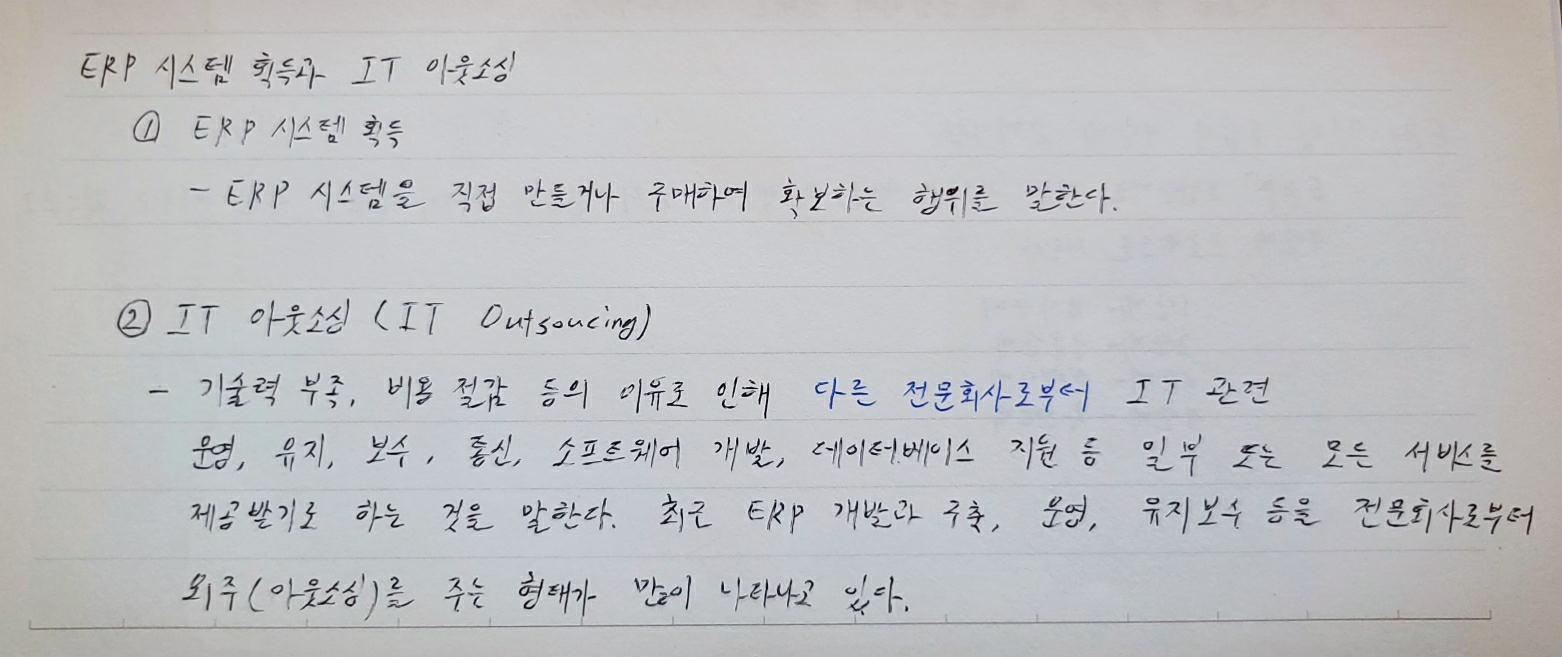 ERP 시스템 획득과 IT 아웃소싱
① ERP 시스템 획득
- ERP 시스템을 직접 만들거나 구매하여 확보하는 행위를 말한다.
② IT 아웃소싱 (IT Outsoucing)
- 기술력 부족, 비용 절감 등의 이유로 인해 다른 전문회사로부터 IT 관련
운영, 유지, 보수, 통신, 소프트웨어 개발, 데이터베이스 지원 등 일부 또는 모든 서비스를
제공받기로 하는 것을 말한다. 최근 ERP 개발과 구축, 운영, 유지보수 등을 전문회사로부터
외주(아웃소싱)를 주는 형태가 많이 나타나고 있다.